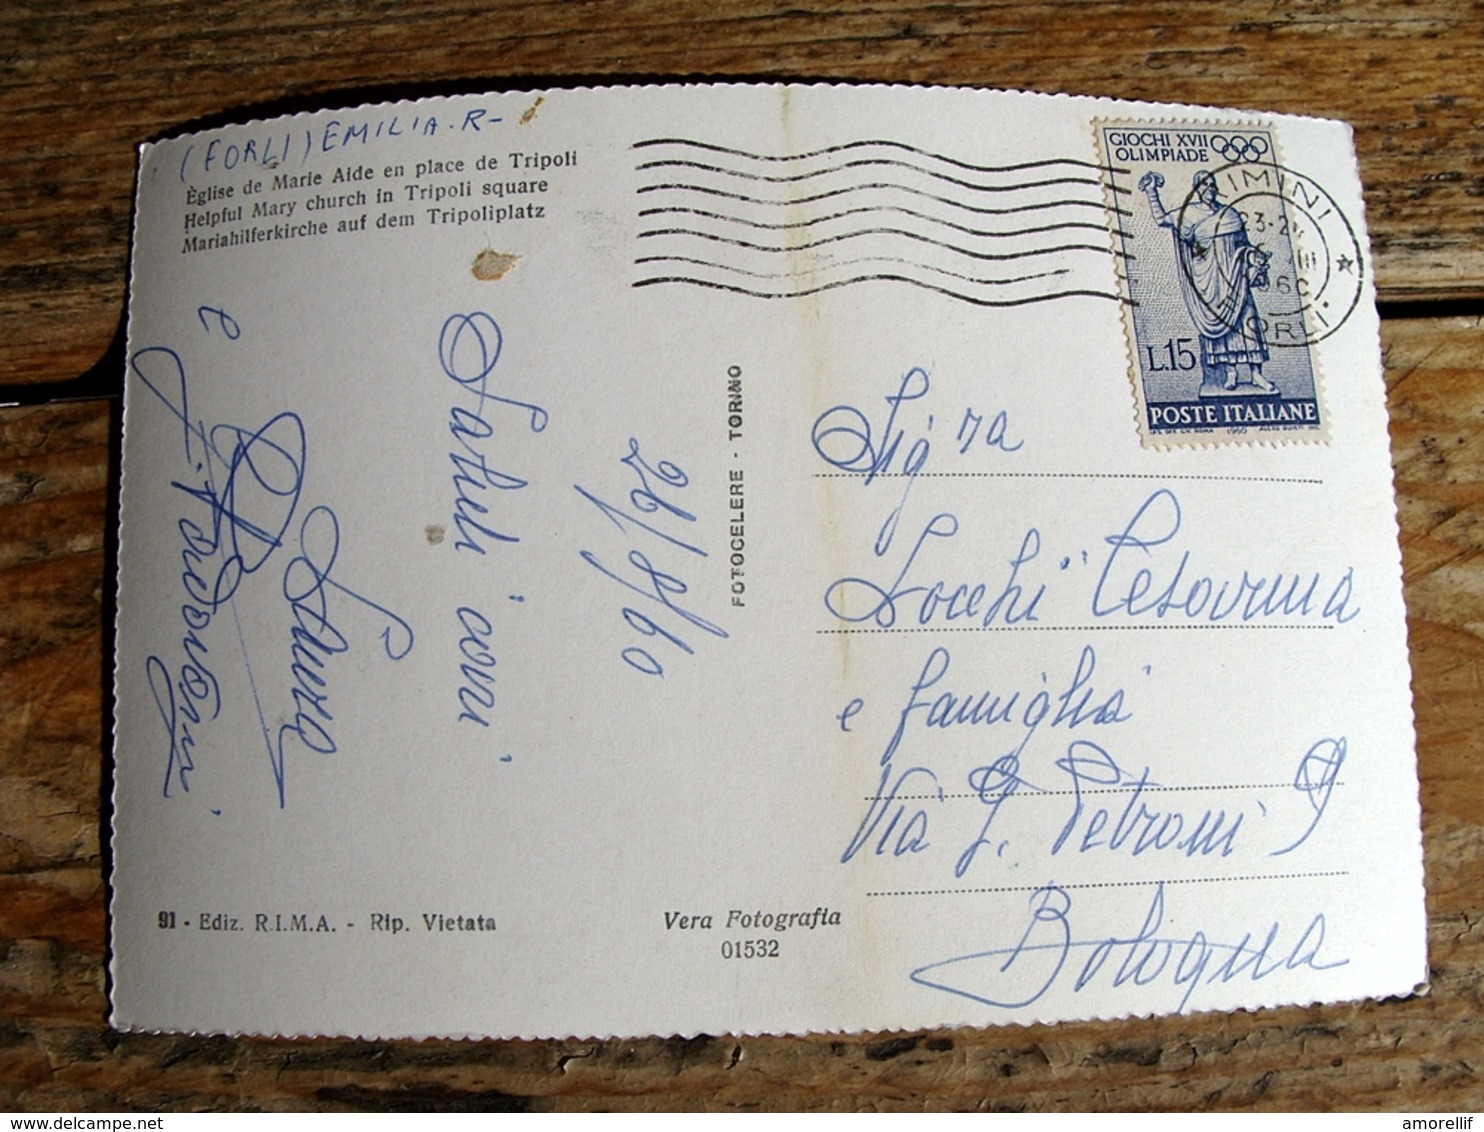 (FORLI) EMILIA. R-
Église de Marie Aide en place de Tripoli
Helpful Mary church in Tripoli square
Mariahilferkirche auf dem Tripoliplatz
GIOCHI XVII
OLIMPIADE
L.15
POSTE ITALIANE
1960
RIMINI
FORLI
26/8/60
Saluti cari
Laura
e
FOTOCELERE - TORINO
Sig ra
Locchi Cesarina
e famiglia
Via G. Petroni 9
Bologna
91 - Ediz. R.I.M.A. - Rip. Vietata
Vera Fotografia
01532
delcampe.net
amorellif